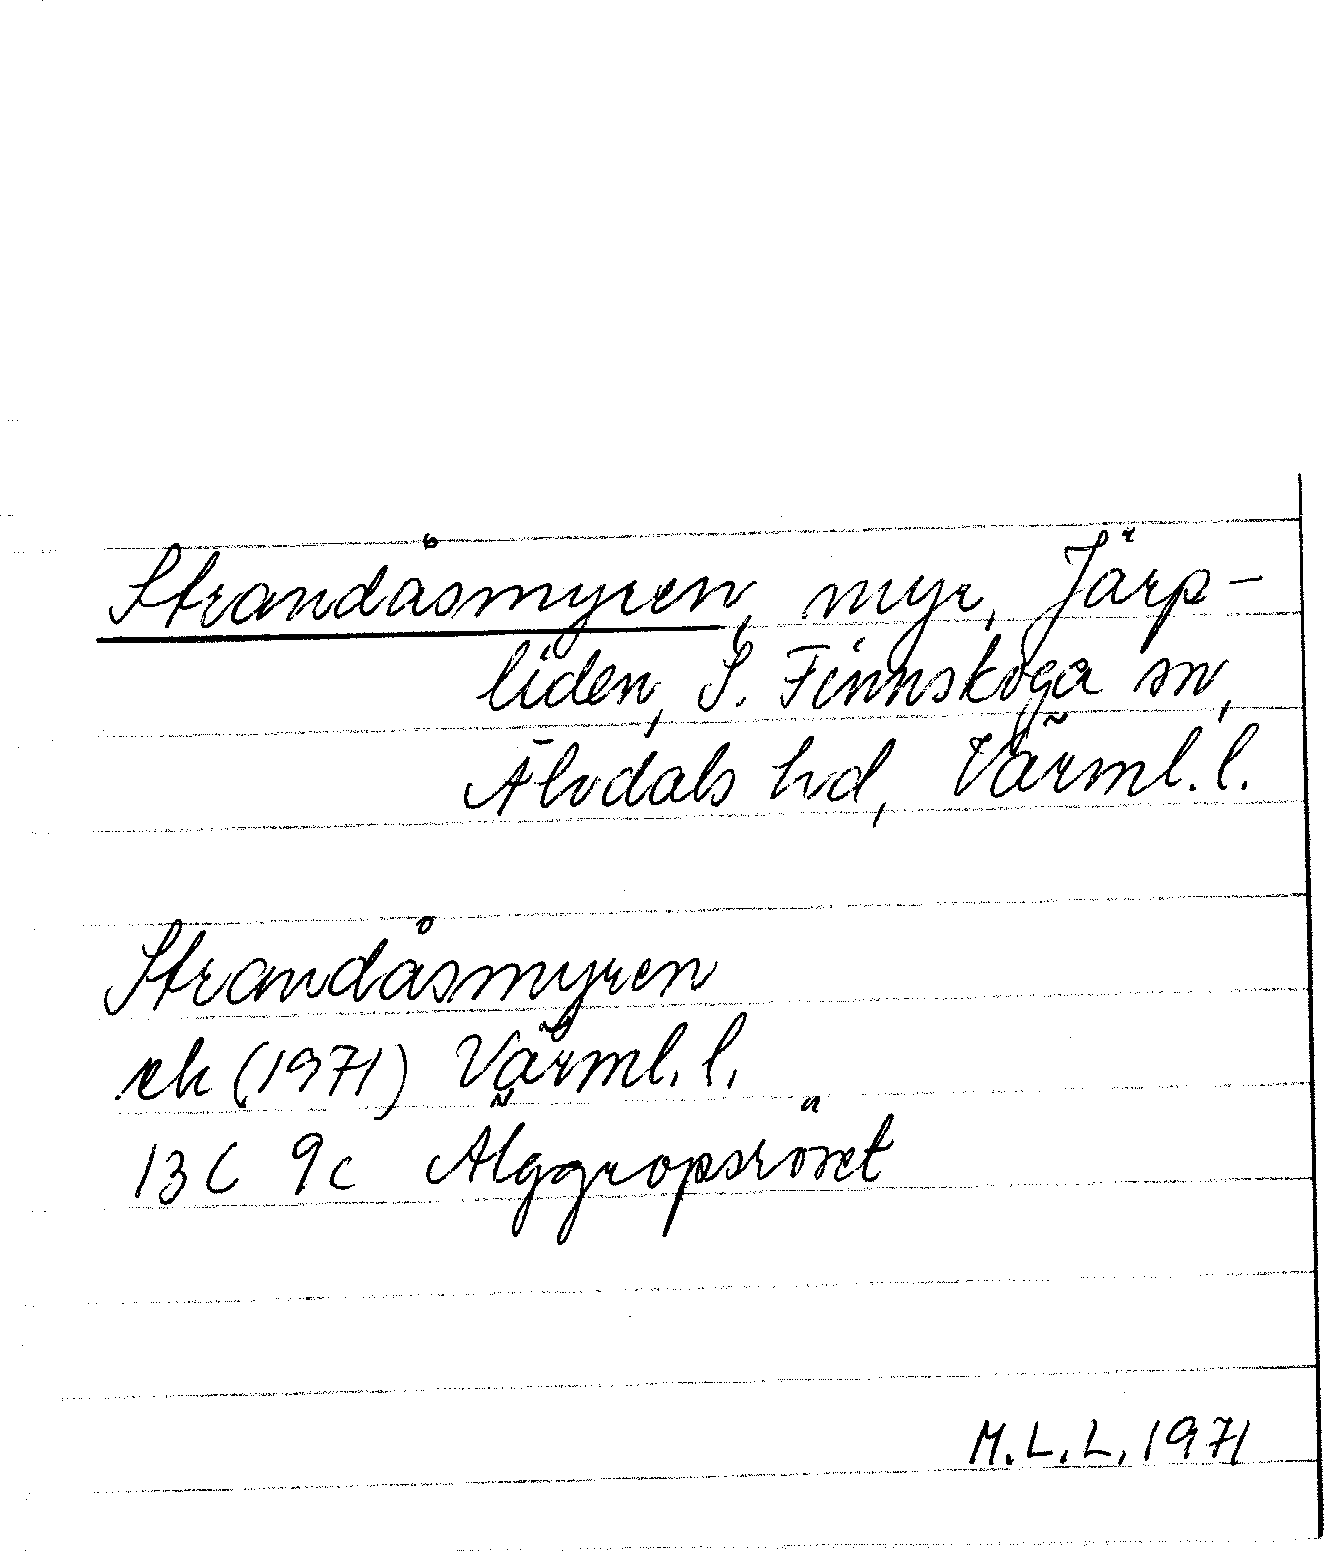 Strandåsmyren, myr, Järp-
liden, S. Finnskoga sn,
Älvdals hd, Värml. l.
Strandåsmyren
ek (1971) Värml. l.
13C 9c Älggropsröset
M.L.L. 1971